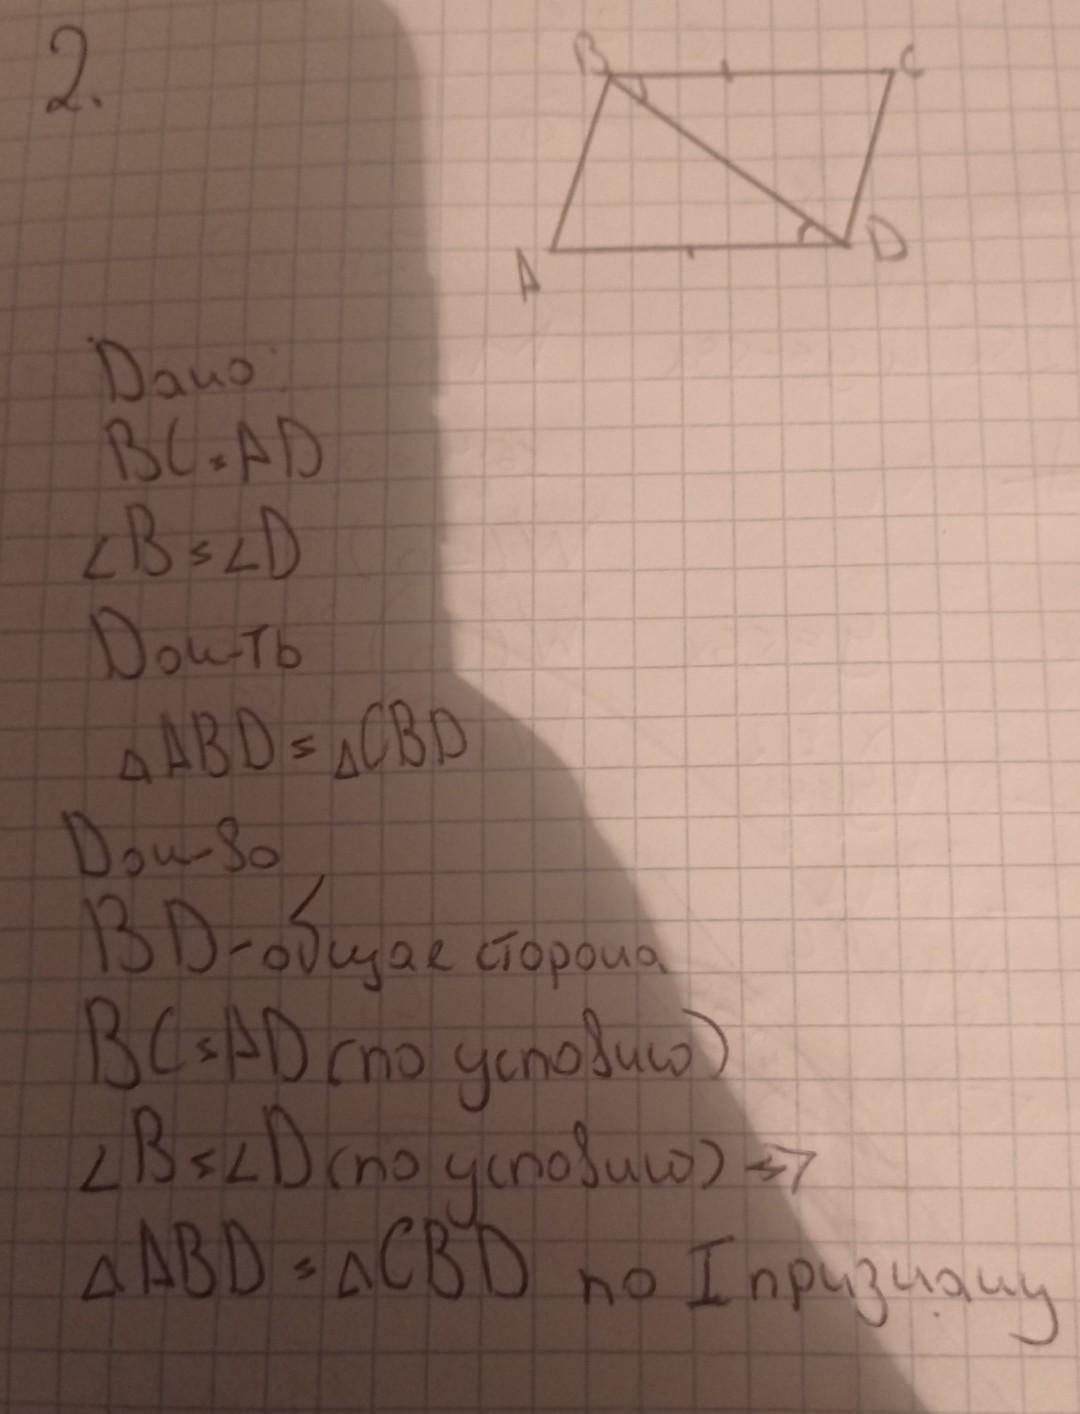 2.
B C
A D
Дано:
BC=AD
∠B=∠D
Док-ть
△ABD=△CBD
Док-во
BD-общая сторона
BC=AD (по условию)
∠B=∠D (по условию) =>
△ABD=△CBD по I признаку